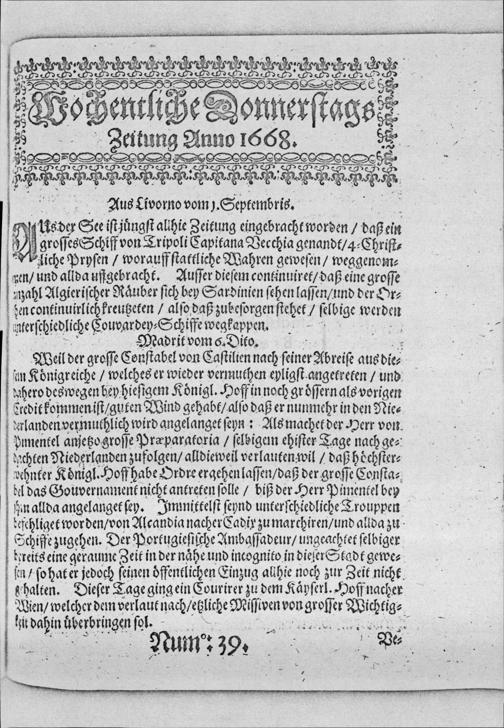 Wochentliche Donnerstags
Zeitung Anno 1668.
Aus Livorno vom 1. Septembris.
AUs der See ist jüngst allhie Zeitung eingebracht worden / daß ein
grosses Schiff von Tripoli Capitana Vecchia genandt / 4. Christ-
liche Prysen / worauff stattliche Wahren gewesen / weggenom-
men / und allda uffgebracht. Ausser diesem continuiret / daß eine grosse
anzahl Algierischer Räuber sich bey Sardinien sehen lassen / und der Or-
ten continuirlich kreutzeten / also daß zubesorgen stehet / selbige werden
unterschiedliche Couwardey-Schiffe wegkappen.
Madrit vom 6. Dito.
Weil der grosse Constabel von Castilien nach seiner Abreise aus die-
sem Königreiche / welches er wieder vermuthen eyligst angetreten / und
dahero deswegen bey hiesigem Königl. Hoff in noch grössern als vorigen
Credit kommen ist / guten Wind gehabt / also daß er nunmehr in den Nie-
derlanden vermuthlich wird angelanget seyn : Als machet der Herr von
Pimentel anjetzo grosse Præparatoria / selbigem ehister Tage nach ge-
dachten Niederlanden zufolgen / alldieweil verlauten wil / daß höchster-
wehnter Königl. Hoff habe Ordre ergehen lassen / daß der grosse Consta-
bel das Gouvernament nicht antreten solle / biß der Herr Pimentel bey
ihm allda angelanget sey. Immittelst seynd unterschiedliche Trouppen
befehliget worden / von Alcandia nacher Cadix zu marchiren / und allda zu
Schiffe zugehen. Der Portugiesische Ambassadeur / ungeachtet selbiger
bereits eine geraume Zeit in der nähe und incognito in dieser Stadt gewe-
sen / so hat er jedoch seinen öffentlichen Einzug allhie noch zur Zeit nicht
gehalten. Dieser Tage ging ein Courirer zu dem Käyserl. Hoff nacher
Wien / welcher dem verlaut nach / etzliche Missiven von grosser Wichtig-
keit dahin überbringen sol.
Num°: 39. Ve-